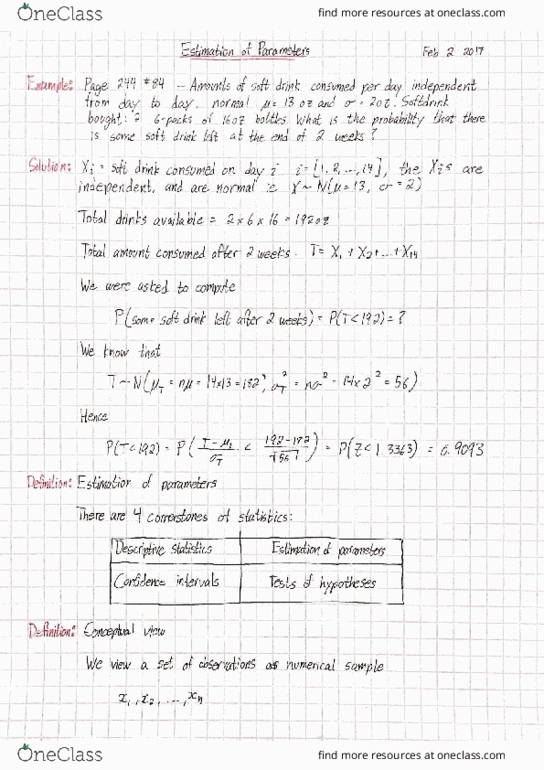 OneClass find more resources at oneclass.com
Estimation of Parameters Feb 2 2017
Example: Page 244 #84 - Amounts of soft drink consumed per day independent
from day to day. normal μ = 13 oz and σ = 2oz. Softdrink
bought: 2 6-packs of 16oz bottles. What is the probability that there
is some soft drink left at the end of 2 weeks?
Solution: Xi = soft drink consumed on day i i = [1, 2, ..., 14], the Xis are
independent, and are normal ie X ~ N(μ = 13, σ = 2)
Total drinks available = 2 × 6 × 16 = 192oz
Total amount consumed after 2 weeks. T = X1 + X2 + ... + X14
We were asked to compute
P(some soft drink left after 2 weeks) = P(T < 192) = ?
We know that
T ~ N(μT = nμ = 14×13 = 182, σT² = nσ² = 14×2² = 56)
Hence
P(T < 192) = P( (T - μT)/σT < (192 - 182)/√56 ) = P(Z < 1.3363) = 0.9093
Definition: Estimation of parameters
There are 4 cornerstones of statistics:
Descriptive statistics Estimation of parameters
Confidence intervals Tests of hypotheses
Definition: Conceptual view
We view a set of observations as numerical sample
x1, x2, ..., xn
OneClass find more resources at oneclass.com